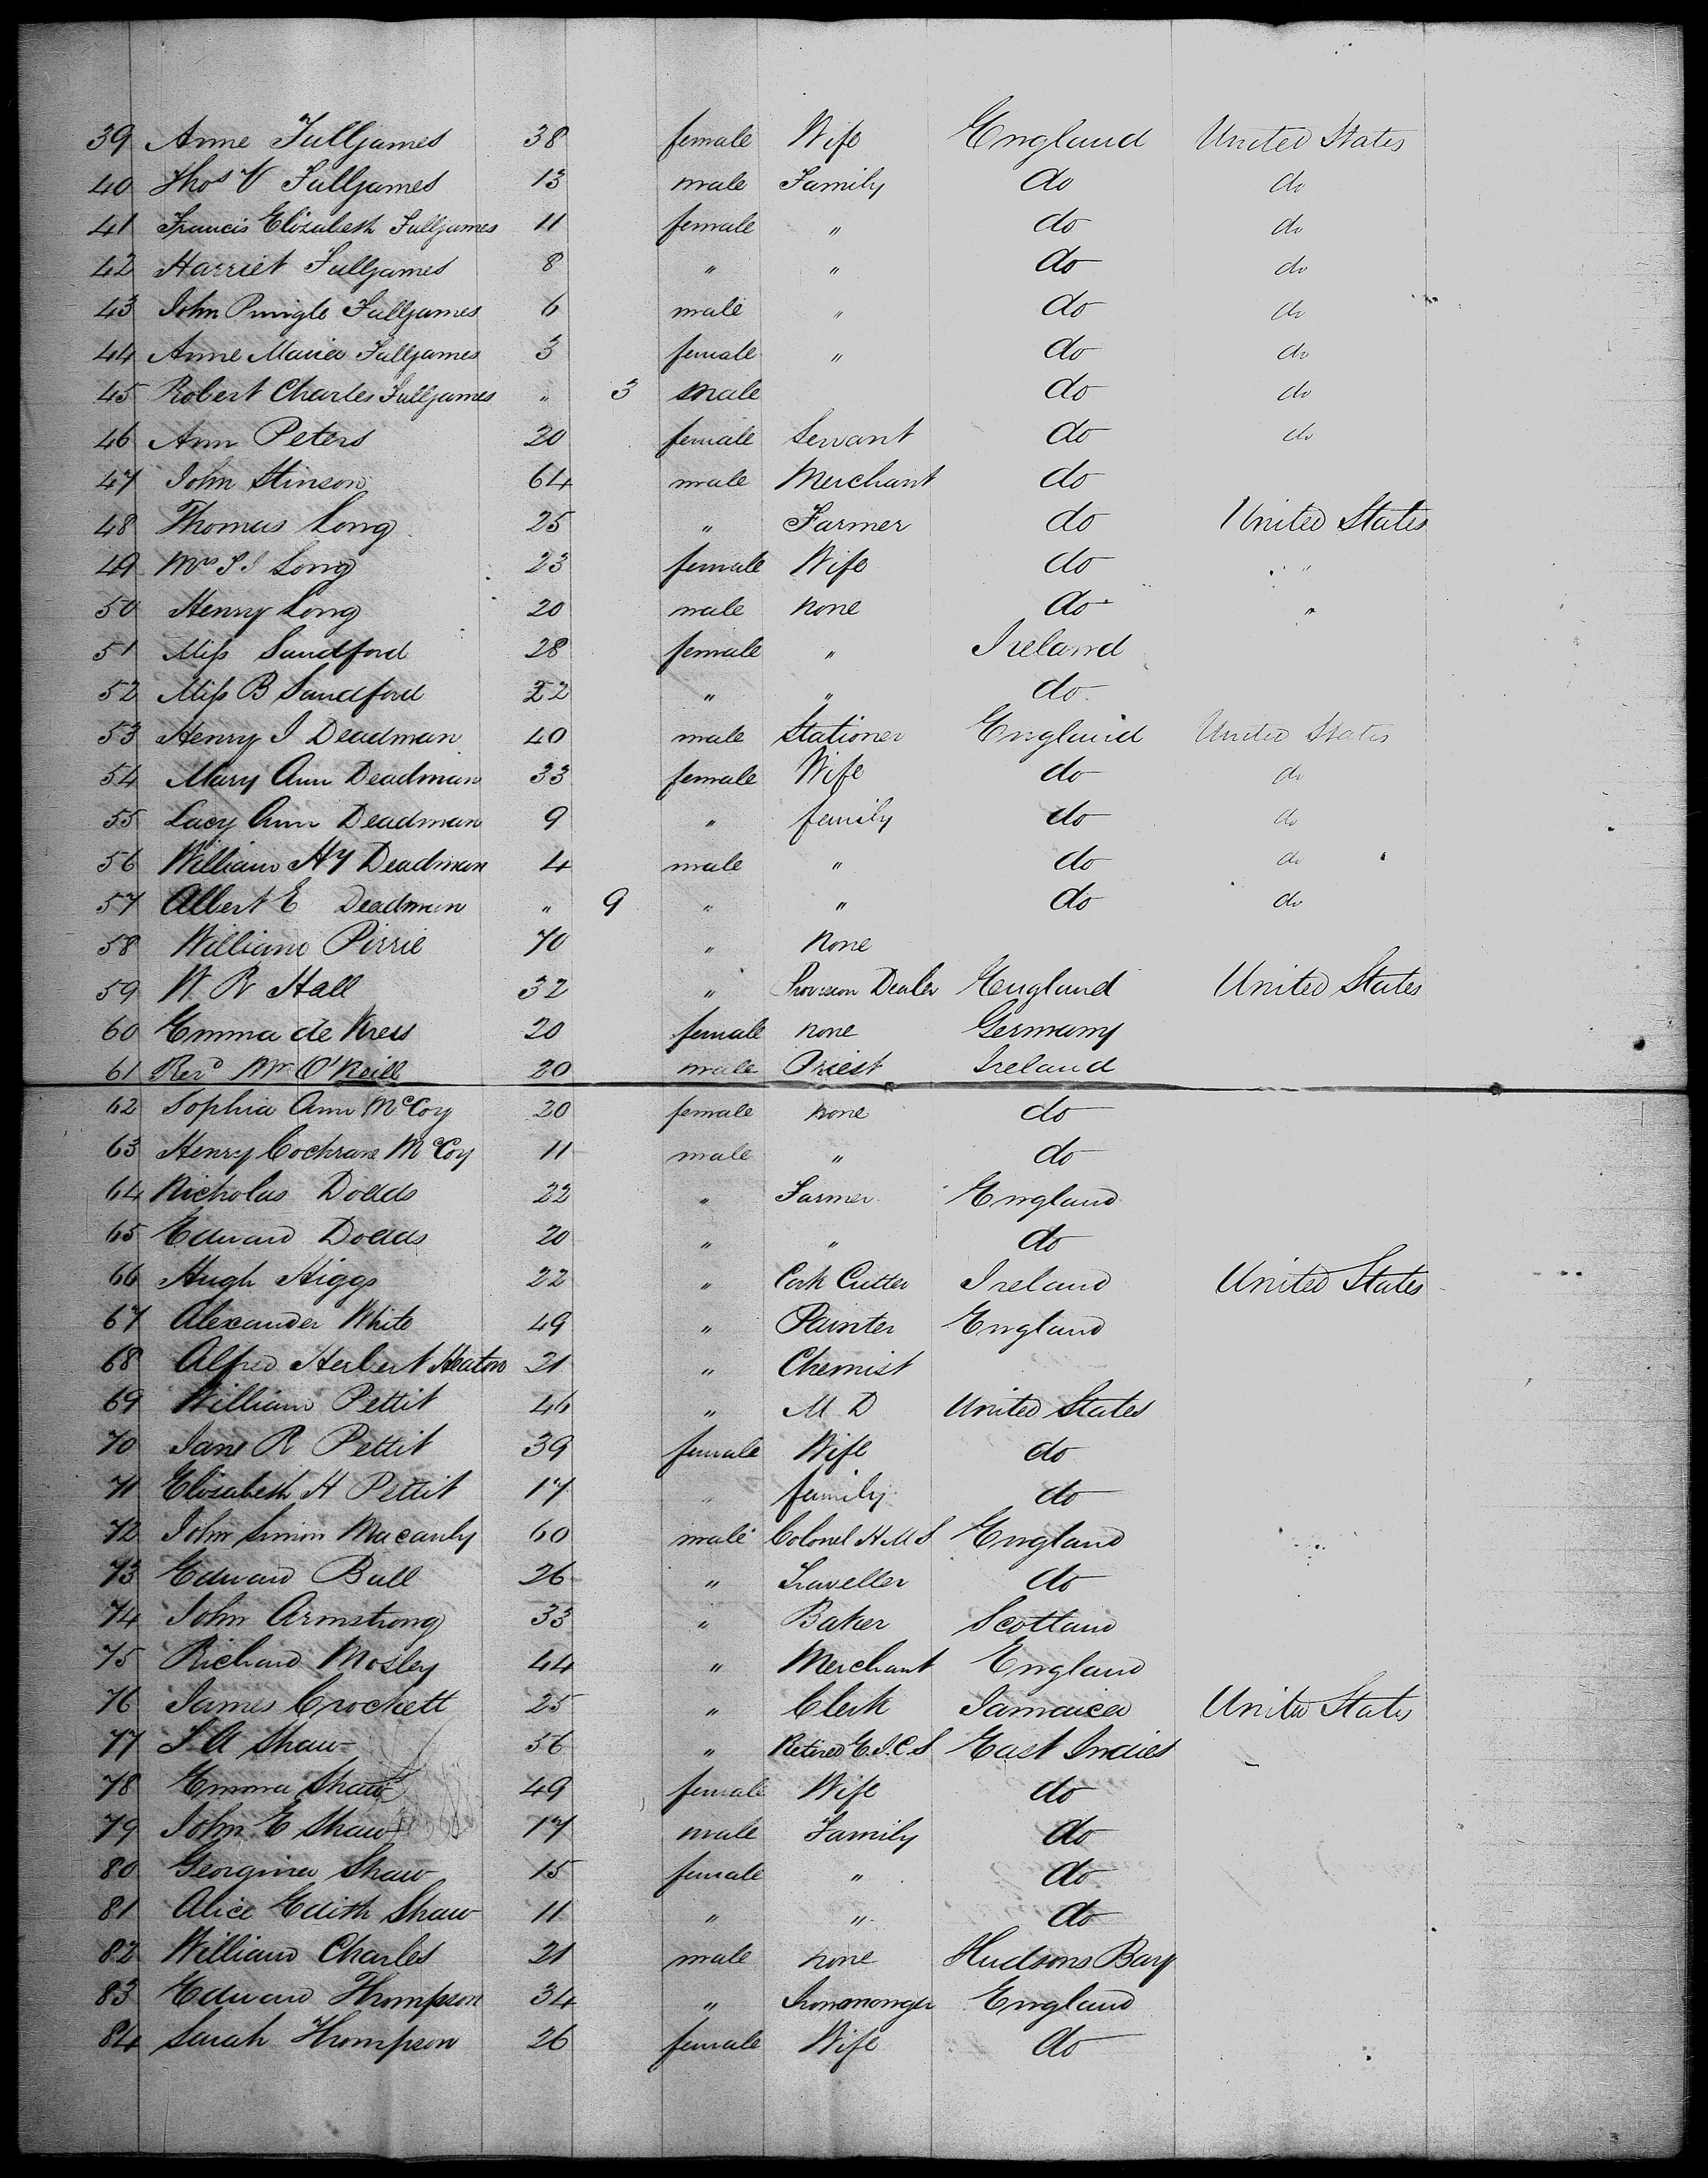 39 Anne Fulljames 38 female Wife England United States
40 Thos V Fulljames 13 male Family do do
41 Francis Elizabeth Fulljames 11 female " do do
42 Harriet Fulljames 8 " " do do
43 John Pringle Fulljames 6 male " do do
44 Anne Maria Fulljames 3 female " do do
45 Robert Charles Fulljames " 3 male do do
46 Ann Peters 20 female Servant do do
47 John Stinson 64 male Merchant do
48 Thomas Long 25 " Farmer do United States
49 Mrs Long 23 female Wife do "
50 Henry Long 20 male none do "
51 Miss Sandford 28 female " Ireland
52 Miss B Sandford 22 " " do
53 Henry I Deadman 40 male Stationer England United States
54 Mary Ann Deadman 33 female Wife do do
55 Lucy Ann Deadman 9 " family do do
56 William Hy Deadman 4 male " do do
57 Albert E Deadman " 9 " " do do
58 William Pirrie 70 " none
59 W R Hall 32 " Provision Dealer England United States
60 Emma de Kress 20 female none Germany
61 Revd Mr O'Neill 20 male Priest Ireland
62 Sophia Ann McCoy 20 female none do
63 Henry Cochrane McCoy 11 male " do
64 Nicholas Dodds 22 " Farmer England
65 Edward Dodds 20 " " do
66 Hugh Higgs 22 " Cork Cutter Ireland United States
67 Alexander White 49 " Painter England
68 Alfred Herbert Heaton 21 " Chemist
69 William Pettit 46 " M D United States
70 Jane R Pettit 39 female Wife do
71 Elizabeth H Pettit 17 " family do
72 John Simon Macauly 60 male Colonel H M S England
73 Edward Ball 26 " Traveller do
74 John Armstrong 33 " Baker Scotland
75 Richard Mosley 44 " Merchant England
76 James Crockett 25 " Clerk Jamaica United States
77 A Shaw 56 " Retired E.I.C.S East Indies
78 Emma Shaw 49 female Wife do
79 John E Shaw 17 male Family do
80 Georgina Shaw 15 female " do
81 Alice Edith Shaw 11 " " do
82 William Charles 21 male none Hudsons Bay
83 Edward Thompson 34 " Ironmonger England
84 Sarah Thompson 26 female Wife do